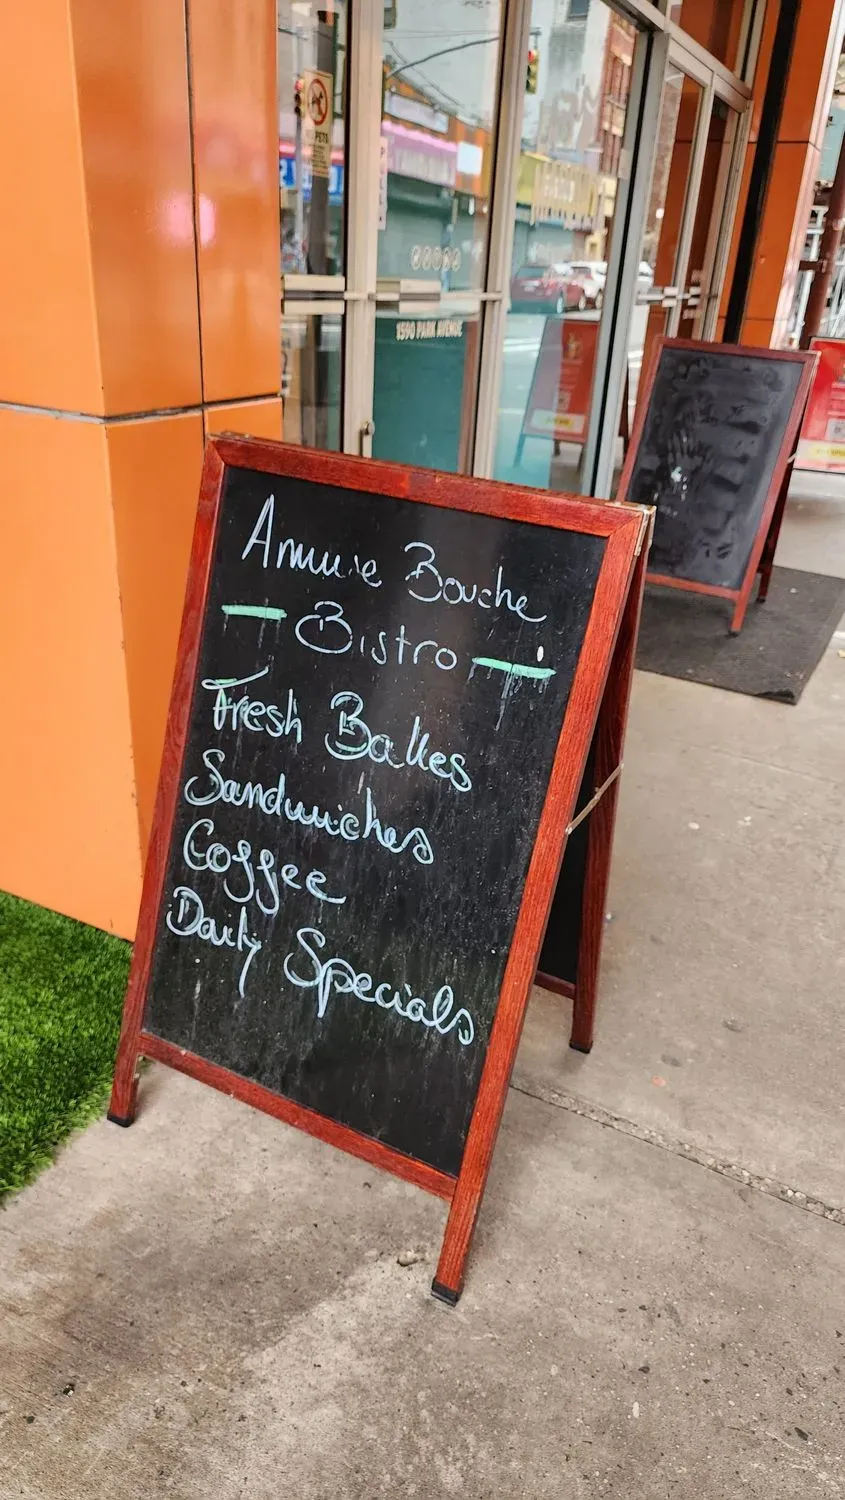 Amuse Bouche
Bistro
Fresh Bakes
Sandwiches
Coffee
Daily Specials
1590 PARK AVENUE
PETS